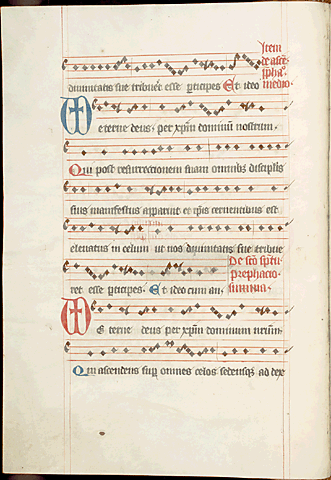 Item
de ascen
sphao
diuinitatis sue tribuer esse pticipes Et ideo medio
eterne deus, per xpm dominum nostrum.
Qui post resurrectionem suam omnibz disciplis
suis manifestus apparuit et ipis cernentibus est
eleuatus in celum ut nos diuinitatis sue tribue
De sco spu
ret esse pticipes. Et ideo cum an prephacio
E terne deus per xpm dominum nrum.
Qui ascendens sup omnes celos sedensqz ad dex